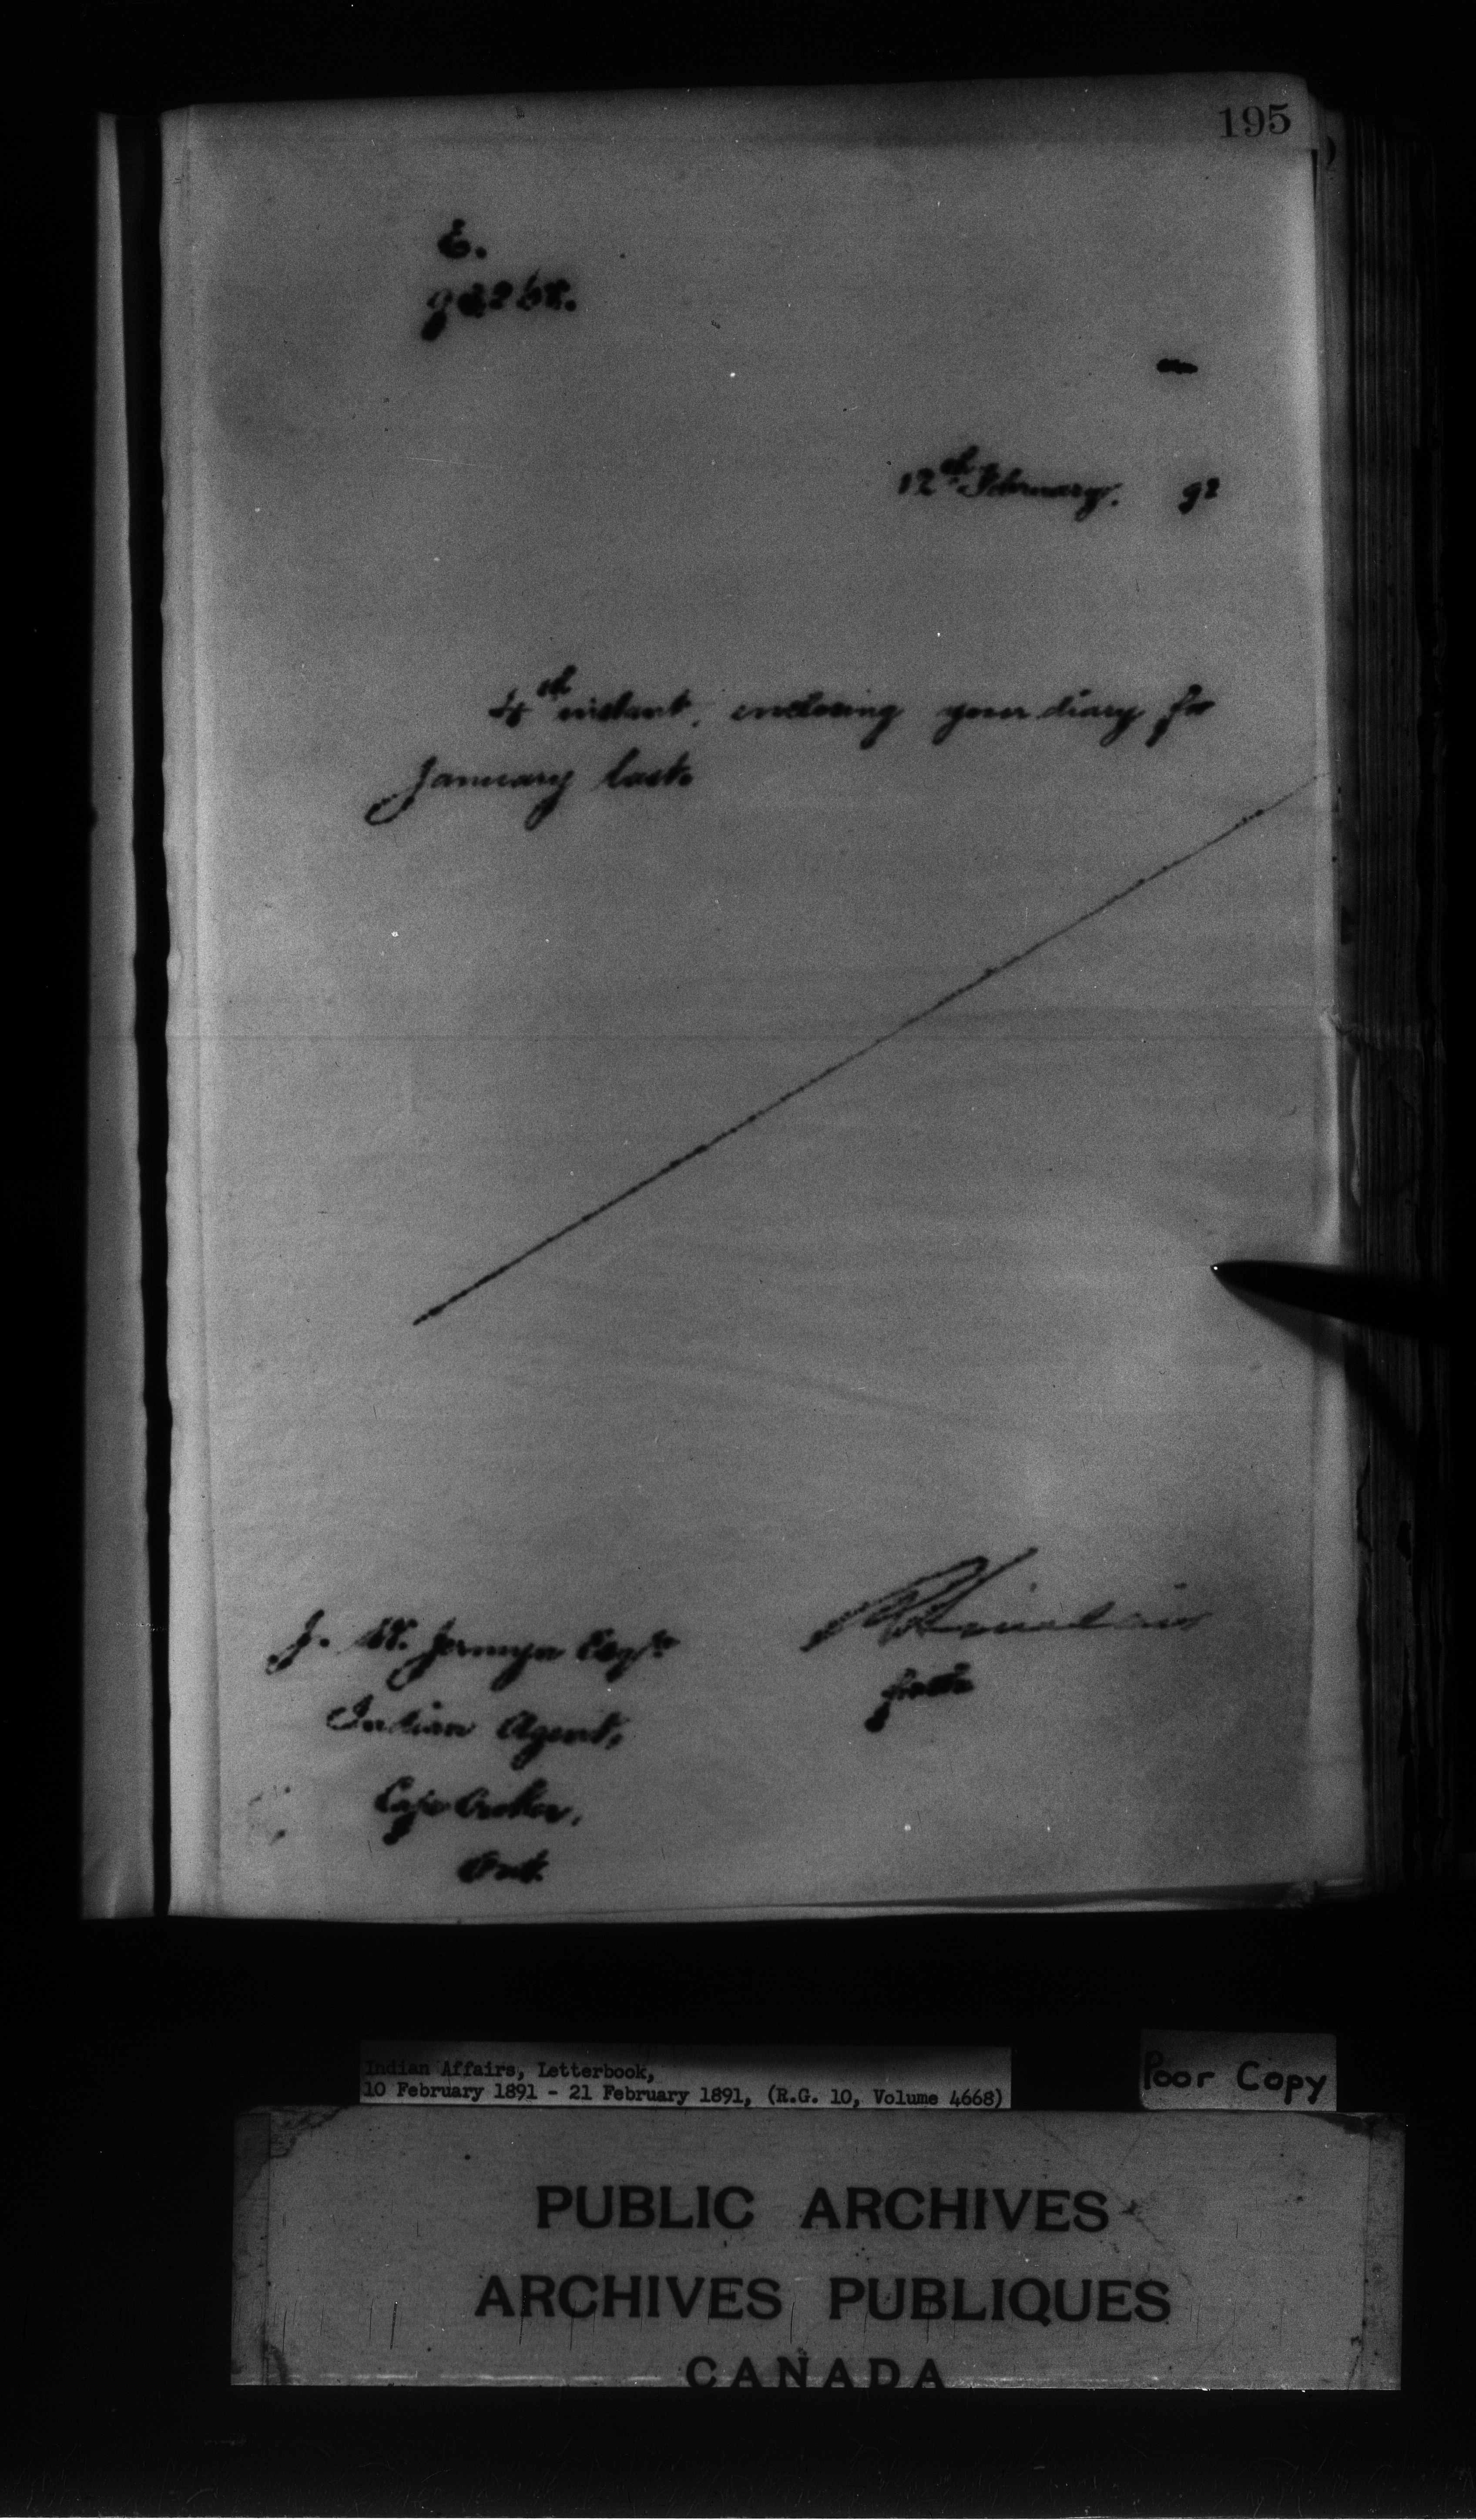 195
E.
12th February, 91
4th instant, enclosing your diary for
January last.
J. W. Jermyn Esqre
Indian Agent,
Cape Croker,
Ont.
Indian Affairs, Letterbook,
10 February 1891 - 21 February 1891, (R.G. 10, Volume 4668)
Poor Copy
PUBLIC ARCHIVES
ARCHIVES PUBLIQUES
CANADA